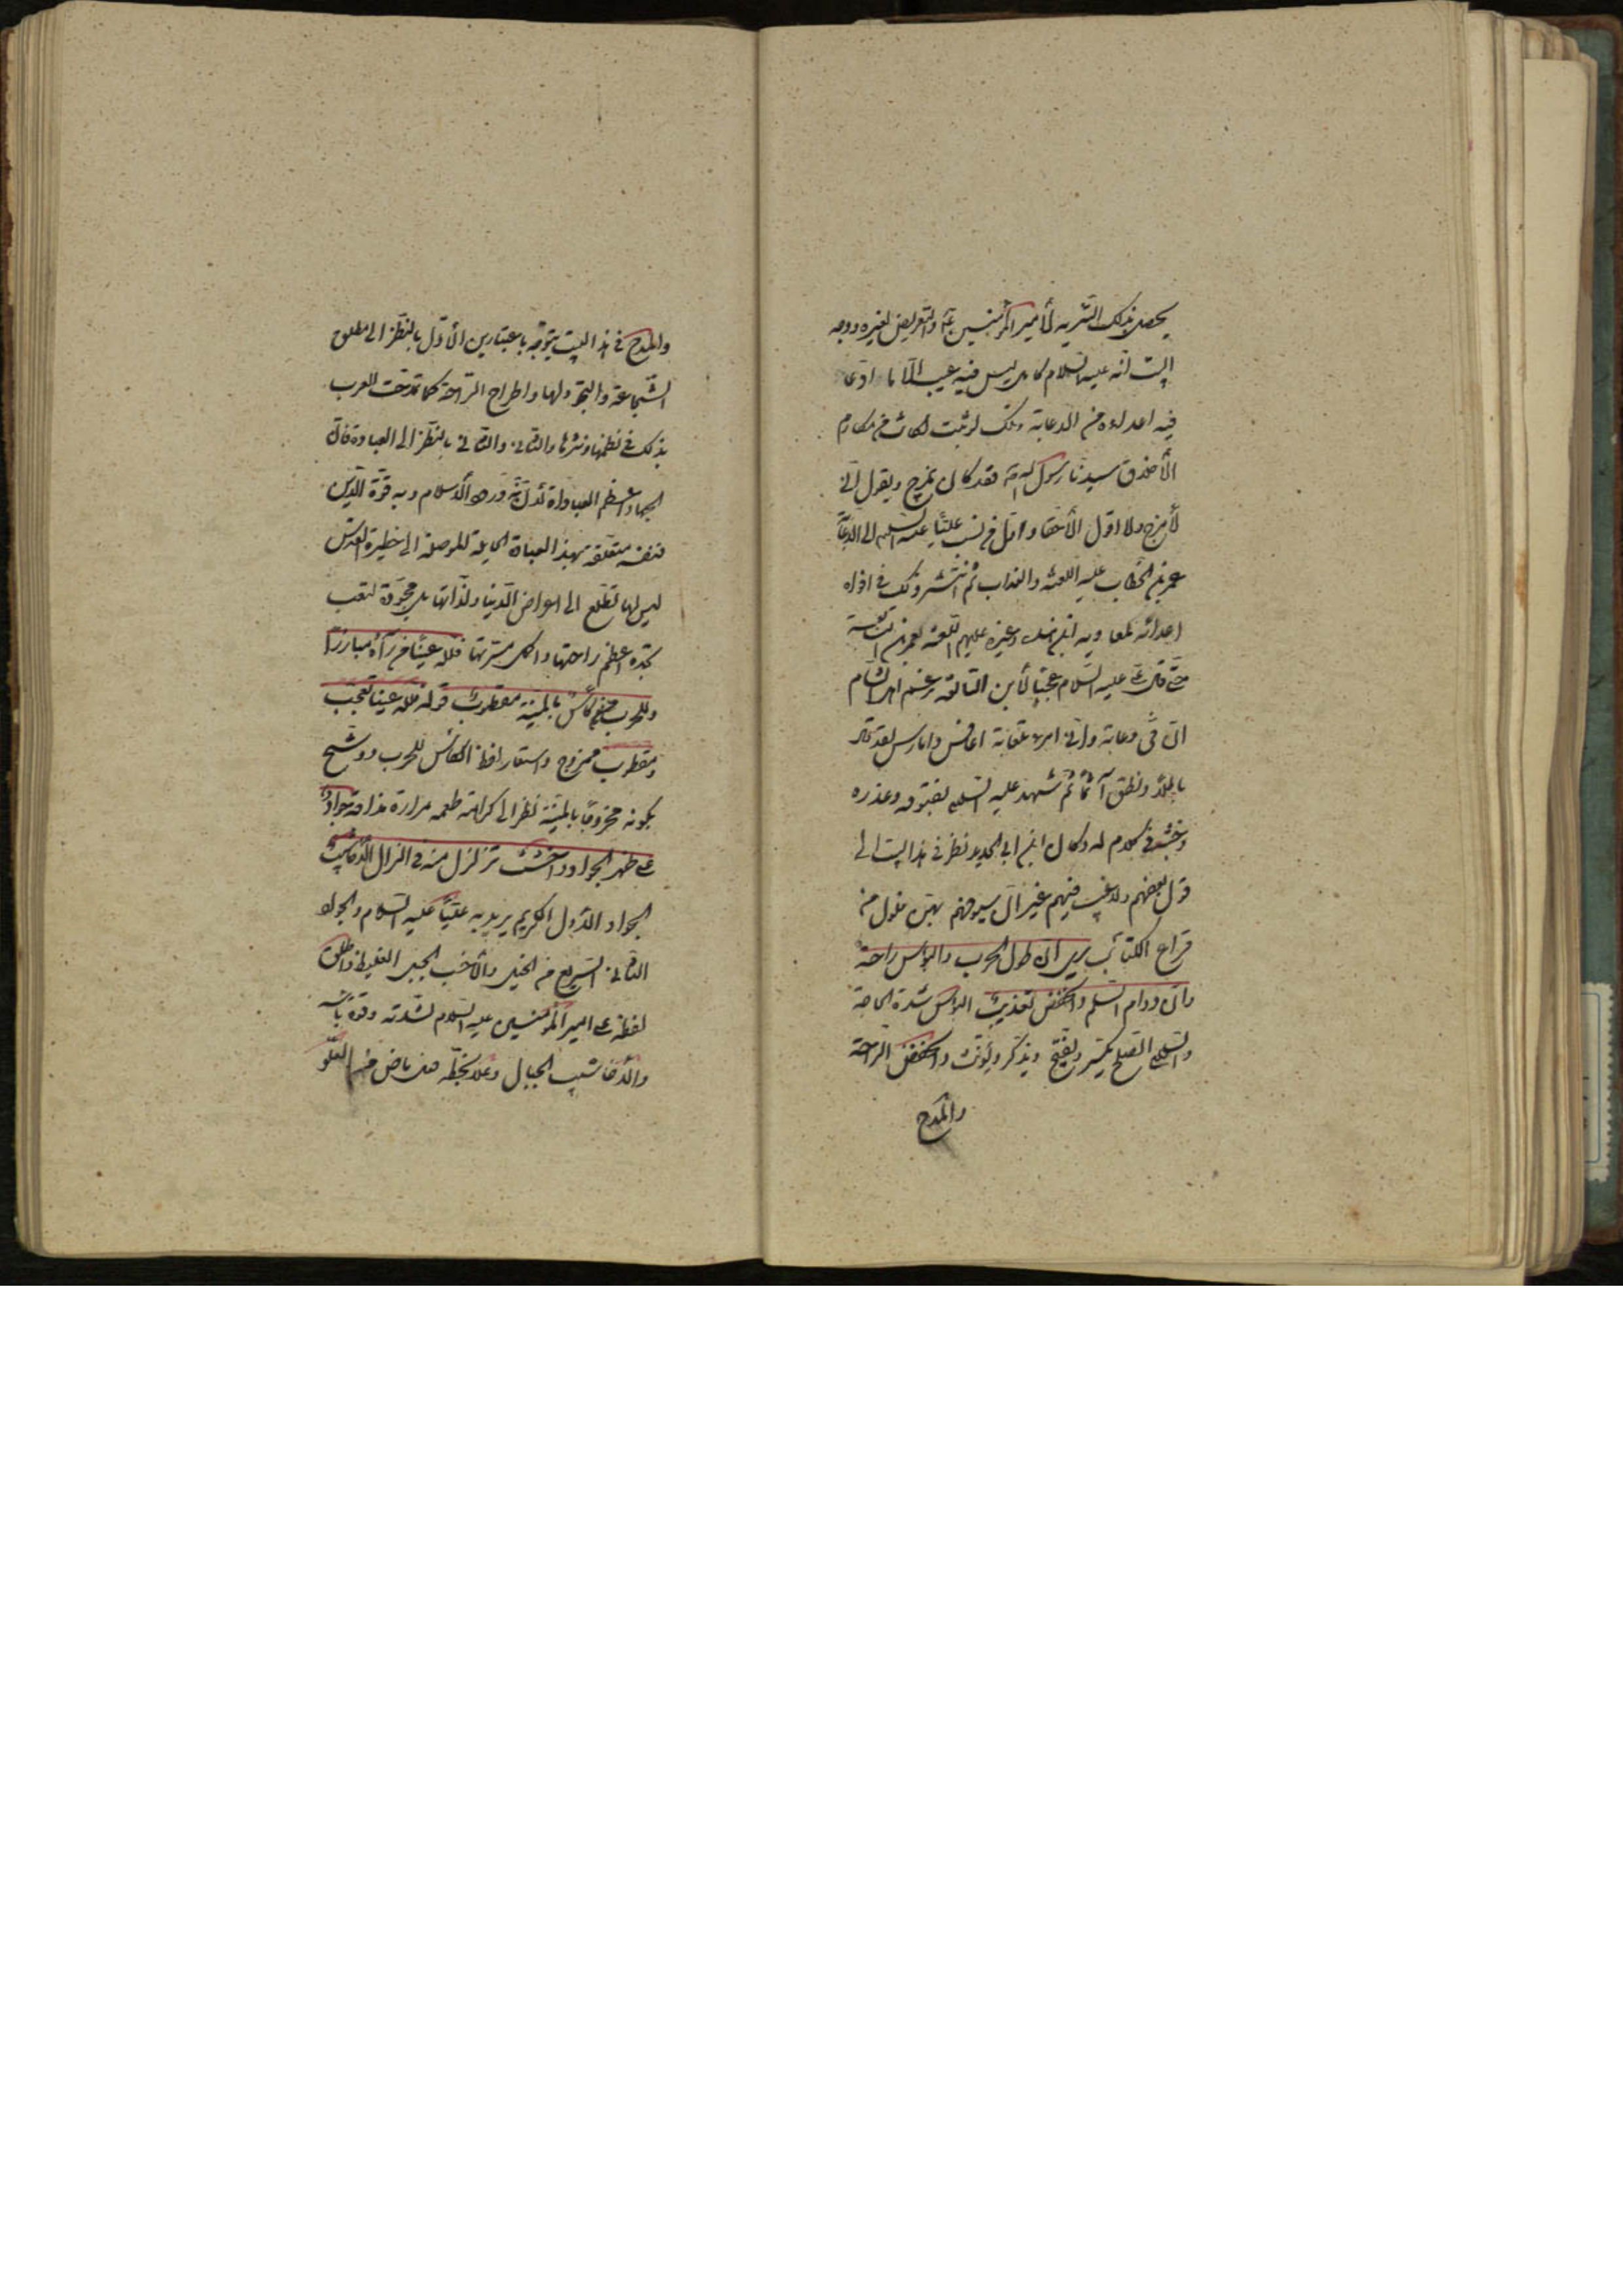 يحصل بذلك التنزيه لأمير المؤمنين ع والتعريض لغيره ووجه
البيت أنه عليه السلام كامل ليس فيه عيب الا ما ادعى
فيه اعداءه من الدعابة وتلك لو ثبت لكانت من مكارم
الأخلاق سيدنا رسول الله ص فقد كان يمزح ويقول إني
لأمزح ولا اقول الا حقا واول من نسب عليا عليه السلام الى الدعابة
عمر بن الخطاب عليه اللعنة والعذاب ثم انتشر ذلك في افواه
اعدائه لمعاوية ابن هند وغيره عليهم اللعنة لعمرو بن النابغة
حتى قال علي عليه السلام عجبا لابن النابغة يزعم لاهل الشام
ان في دعابة واني امرء تلعابة اعافس وامارس لقد قال
باطلا ونطق آثما ثم شهد عليه السلام بفسوقه وغدره
وخبثه في كلام له وكان ابن ابي الحديد نظر في هذا البيت الى
قول بعضهم ولا عيب فيهم غير أن سيوفهم بهن فلول من
قراع الكتائب يرى ان طول الحرب والبؤس راحة
وان دوام السلم والخفض تعذيب البؤس شدة الحاجة
والسلم الصلح يكسر ويفتح ويذكر ويؤنث والخفض الراحة
والمدح
والمدح في هذا البيت يتوجه باعتبارين الأول بالنظر الى مطلق
الشجاعة والتجرد لها واطراح الراحة كما تمدحت العرب
بذلك في نظمها ونثرها والثاني بالنظر الى العبادة فان
الجهاد اعظم العبادات لأن به ورد الاسلام وبه قوة الدين
فنفسه متعلقة بهذه العبادة الموصلة الى حظيرة القدس
ليس لها تطلع الى اعواض الدنيا ولذاتها بل محبوبة لتعب
تجده اعظم راحتها واكمل مسرتها فلله عينا من رآه مبارزا
وللحرب كأس بالمنية مقطوب قوله لله عينا تعجب
ومقطوب ممزوج واستعار لفظ الكأس للحرب ورشح
بكونه ممزوجا بالمنية نظرا الى كراهة طعمه مرارة مذاقه جواد
على ظهر الجواد واخشب تزلزل منه في النزال الأخاشيب
الجواد الأول الكريم يريد به عليا عليه السلام والجواد
الثاني السريع من الخيل والأخشب الجبل الغليظ واطلق
لفظه على امير المؤمنين عليه السلام لشدته وقوة بأسه
والأخاشيب الجبال وعلا بخطه فعل ماض من العلو